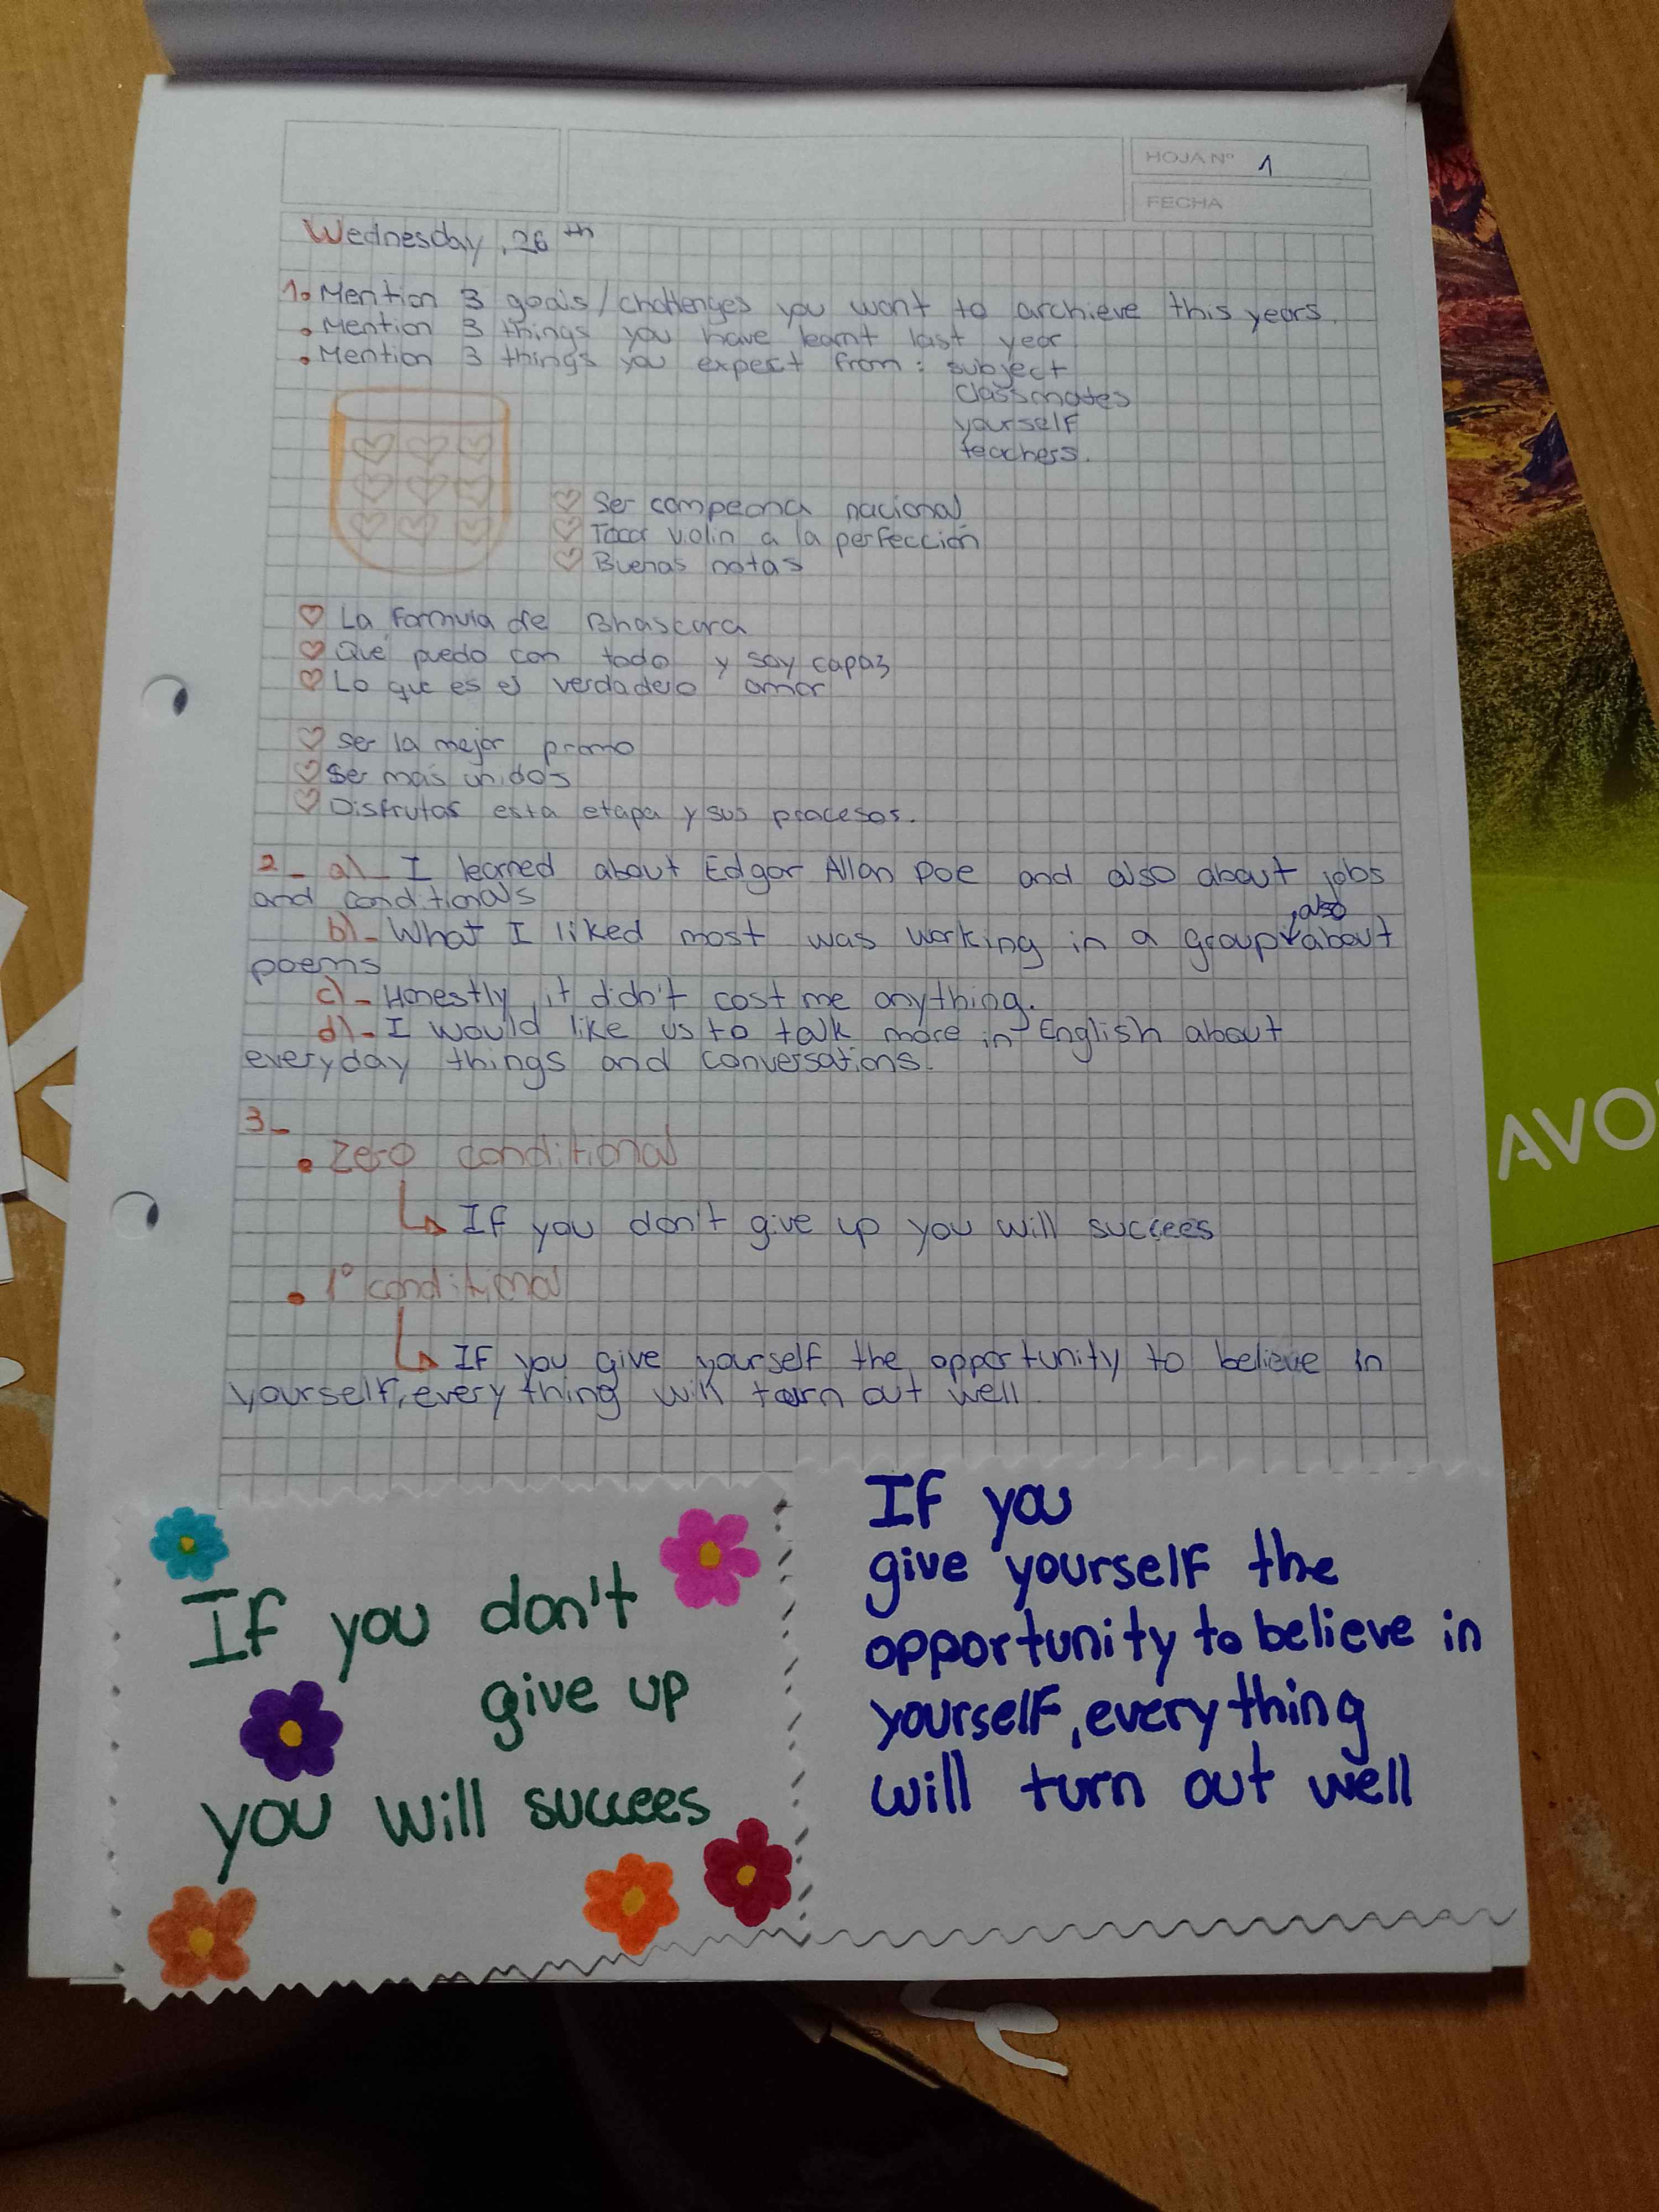 HOJA Nº 1
FECHA
Wednesday, 26th
1. Mention 3 goals/challenges you want to archieve this years.
• Mention 3 things you have learnt last year
• Mention 3 things you expect from: subject
classmates
yourself
teachers.
Ser campeona nacional
Tocar violin a la perfección
Buenas notas
La formula de Bhascara
Que puedo con todo y soy capaz
Lo que es el verdadero amor
Ser la mejor promo
Ser más unidos
Disfrutar esta etapa y sus procesos.
2_ a)_ I learned about Edgar Allan Poe and also about jobs
and conditionals
b)_ What I liked most was working in a group, also about
poems
c)_ Honestly, it didn't cost me anything.
d)_ I would like us to talk more in English about
everyday things and conversations.
3_
• Zero conditional
If you don't give up you will succees
• 1º conditional
If you give yourself the opportunity to believe in
yourself, every thing will turn out well
If you don't
give up
you will succees
If you
give yourself the
opportunity to believe in
yourself, every thing
will turn out well
AVO